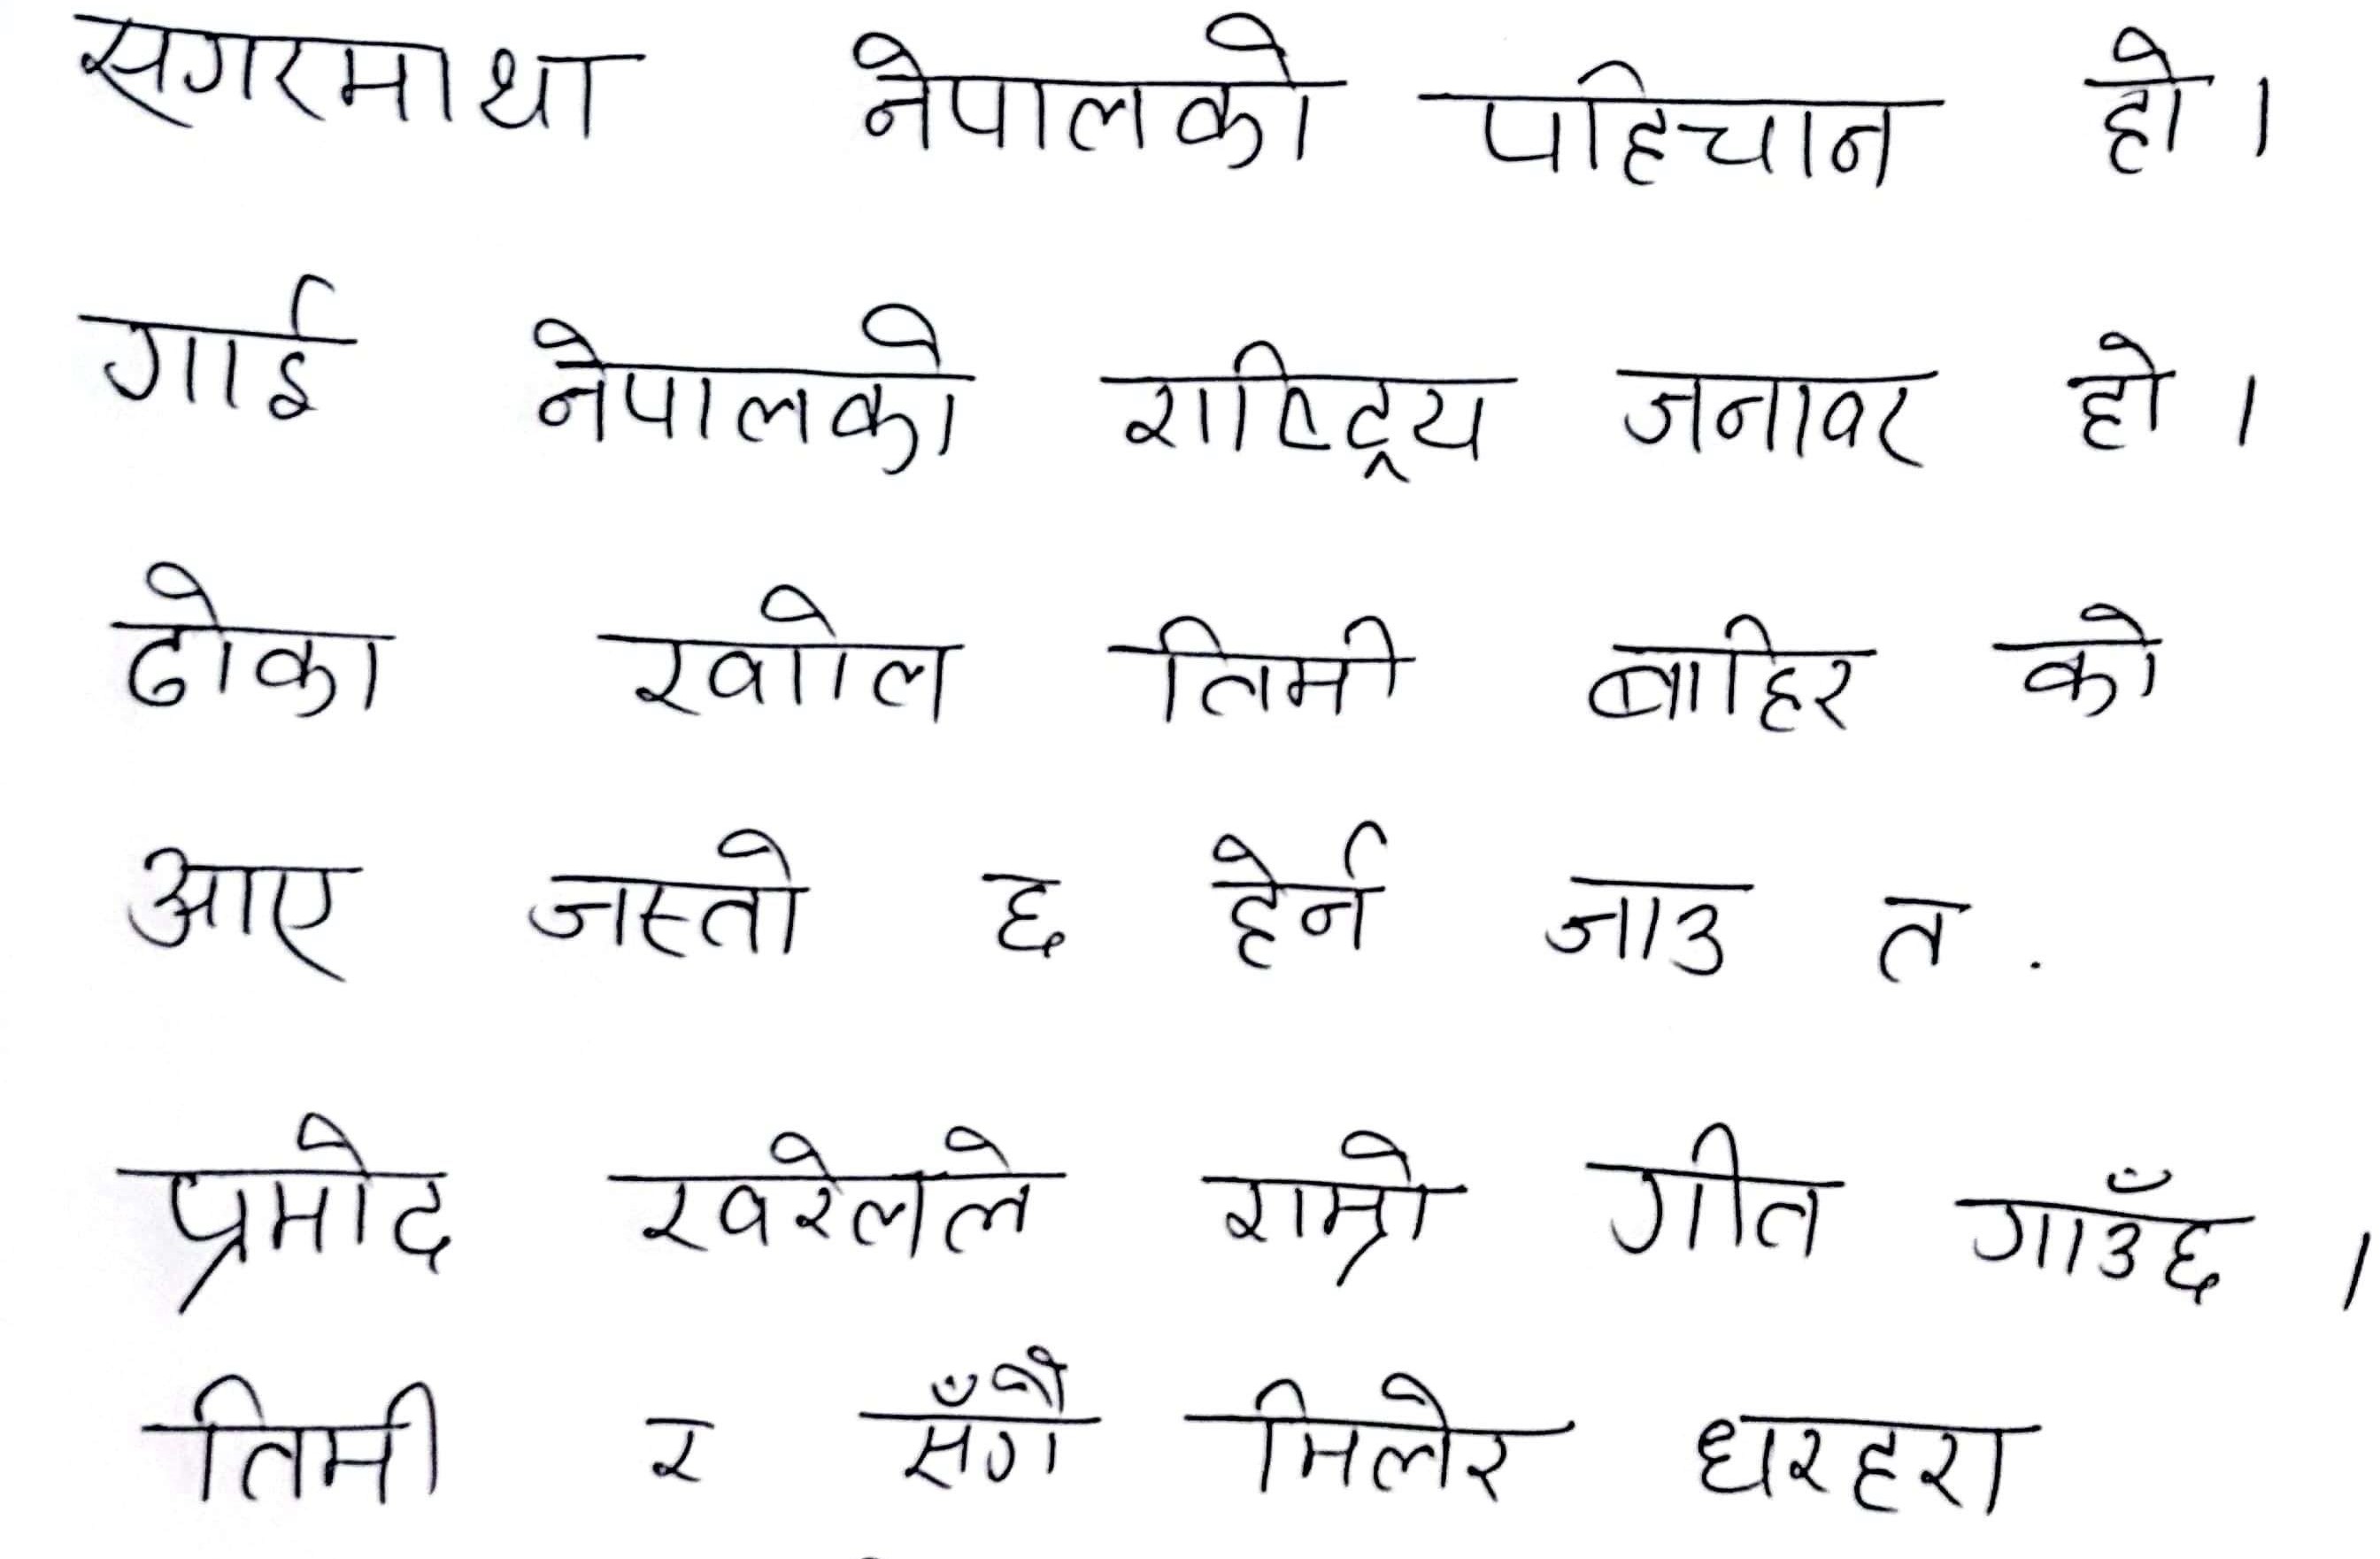 सगरमाथा नेपालको पहिचान हो।
गाई नेपालको राष्ट्रिय जनावर हो।
ढोका खोल तिमी बाहिर को
आए जस्तो छ हेर्न जाउ त.
प्रमोद खरेलले राम्रो गीत गाउँछ।
तिमी र सँगै मिलेर धरहरा